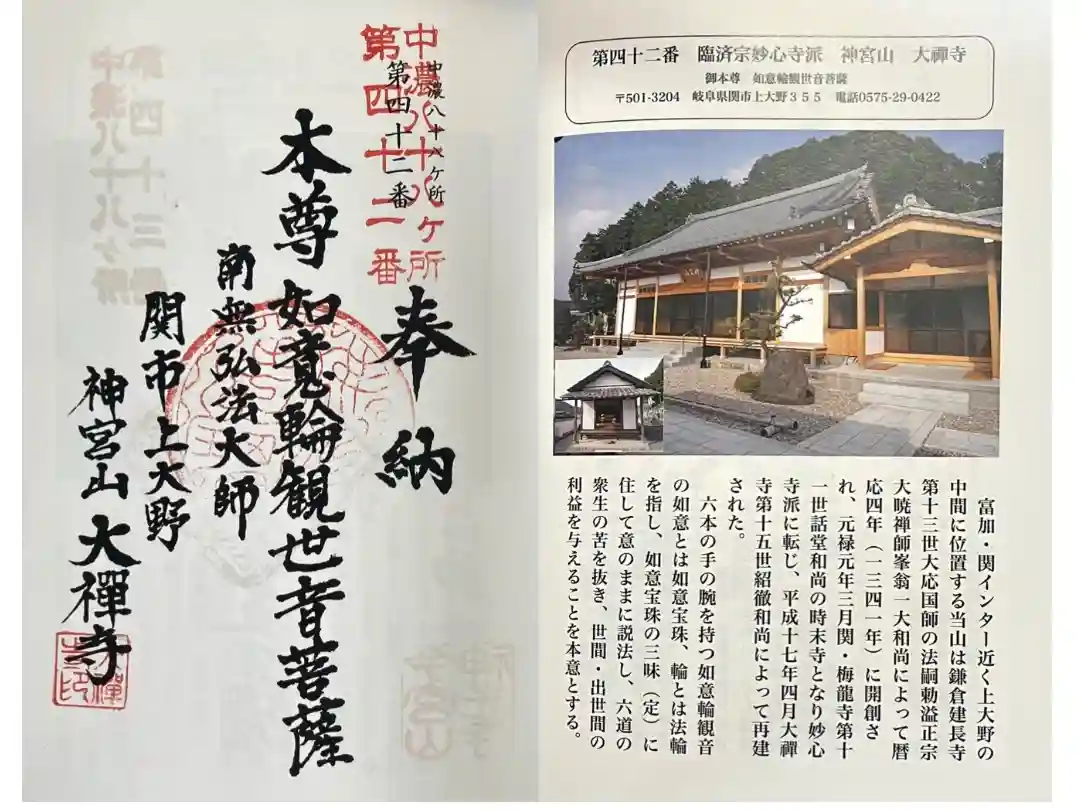 中濃八十八ヶ所
第四十二番
中濃八十八ヶ所
第四十二番
奉納
本尊如意輪観世音菩薩
南無弘法大師
関市上大野
神宮山大禅寺
第四十二番　臨済宗妙心寺派　神宮山　大禅寺
御本尊　如意輪観世音菩薩
〒501-3204　岐阜県関市上大野３５５　電話0575-29-0422
富加・関インター近く上大野の
中間に位置する当山は鎌倉建長寺
第十三世大応国師の法嗣勅諡正宗
大暁禅師峯翁一大和尚によって暦
応四年（一三四一年）に開創さ
れ、元禄元年三月関・梅龍寺第十
一世話堂和尚の時末寺となり妙心
寺派に転じ、平成十七年四月大禅
寺第十五世紹徹和尚によって再建
された。
六本の手の腕を持つ如意輪観音
の如意とは如意宝珠、輪とは法輪
を指し、如意宝珠の三昧（定）に
住して意のままに説法し、六道の
衆生の苦を抜き、世間・出世間の
利益を与えることを本意とする。